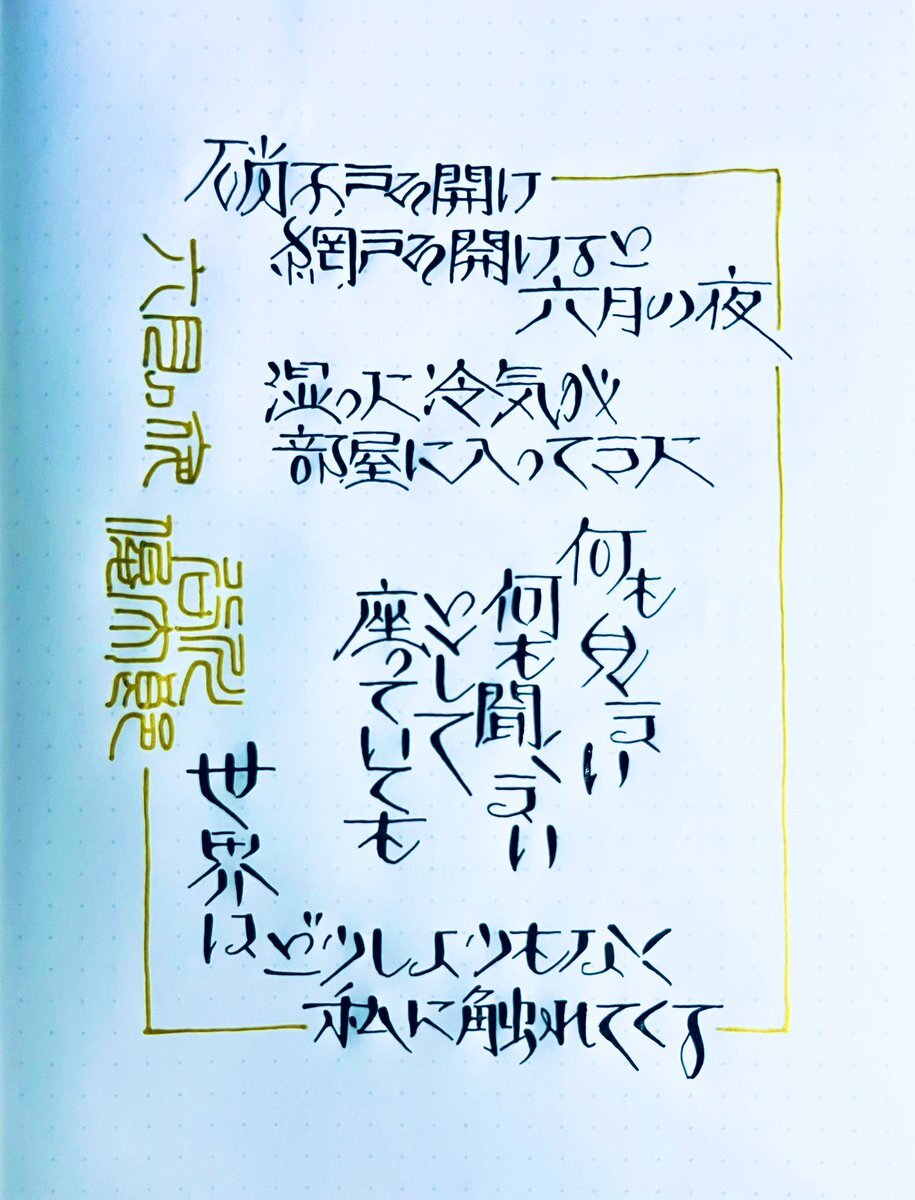 硝子戸を開け
網戸を開けると
六月の夜
湿った冷気が
部屋に入ってきた
何も見まい
何も聞くまい
として
座っていても
世界は
どうしようもなく
私に触れてくる
六月の夜